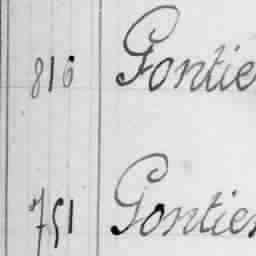 816 Gontier
751 Gontier